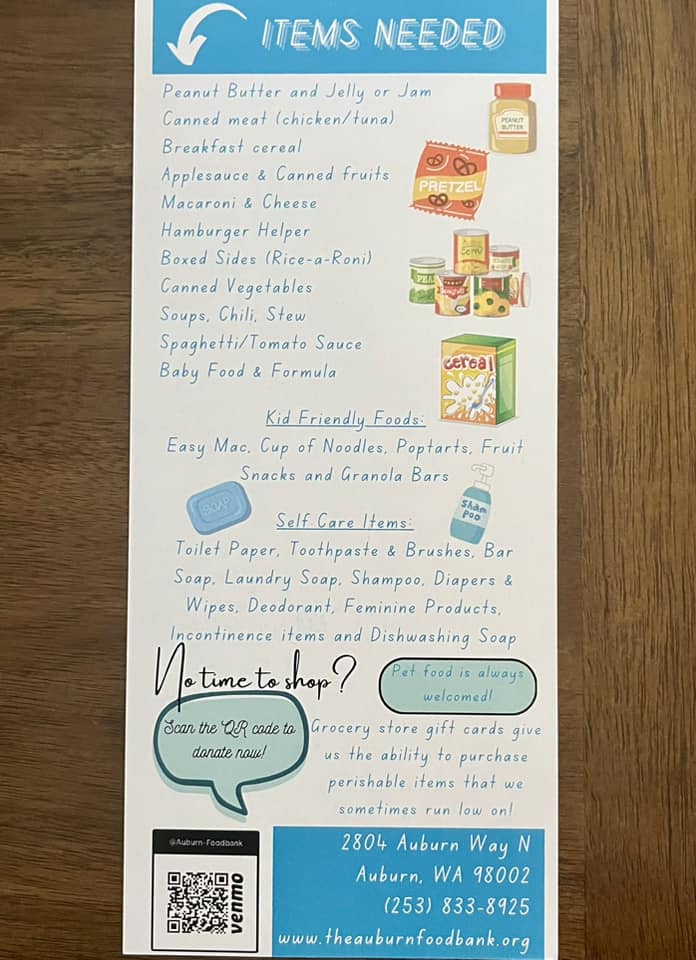 ITEMS NEEDED
Peanut Butter and Jelly or Jam
Canned meat (chicken/tuna)
Breakfast cereal
Applesauce & Canned fruits
Macaroni & Cheese
Hamburger Helper
Boxed Sides (Rice-a-Roni)
Canned Vegetables
Soups, Chili, Stew
Spaghetti/Tomato Sauce
Baby Food & Formula
PEANUT
BUTTER
PRETZEL
cereal
Kid Friendly Foods:
Easy Mac, Cup of Noodles, Poptarts, Fruit
Snacks and Granola Bars
SOAP
Sham
poo
Self Care Items:
Toilet Paper, Toothpaste & Brushes, Bar
Soap, Laundry Soap, Shampoo, Diapers &
Wipes, Deodorant, Feminine Products,
Incontinence items and Dishwashing Soap
No time to shop?
Pet food is always
welcomed!
Scan the QR code to
donate now!
Grocery store gift cards give
us the ability to purchase
perishable items that we
sometimes run low on!
@Auburn-Foodbank
venmo
2804 Auburn Way N
Auburn, WA 98002
(253) 833-8925
www.theauburnfoodbank.org